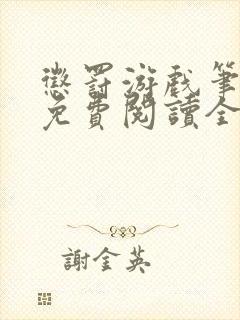 懲罰游戲筆
免費閱讀全
謝金英